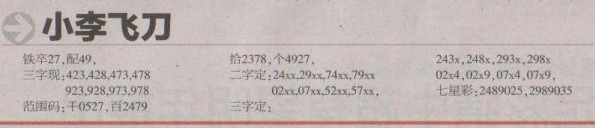 小李飞刀
铁卒27,配49,
三字现:423,428,473,478
923,928,973,978
范围码:千0527,百2479
拾2378,个4927,
二字定:24xx,29xx,74xx,79xx
02xx,07xx,52xx,57xx,
三字定:
243x,248x,293x,298x
02x4,02x9,07x4,07x9,
七星彩:2489025,2989035